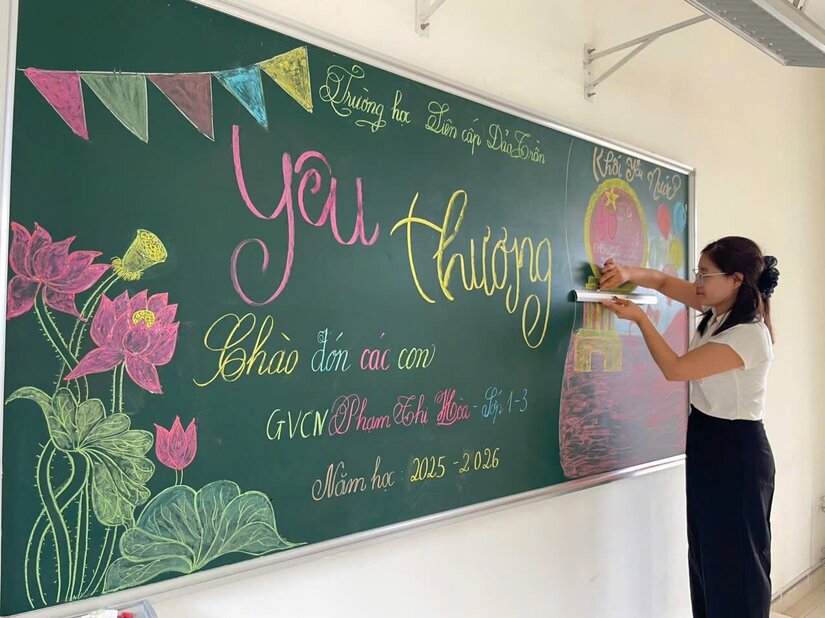 Trường học Liên cấp Đản Trần
yêu
thương
Chào đón các con
GVCN Phạm Thị Hòa - Lớp 1-3
Năm học : 2025 - 2026
Khối Yêu Nước